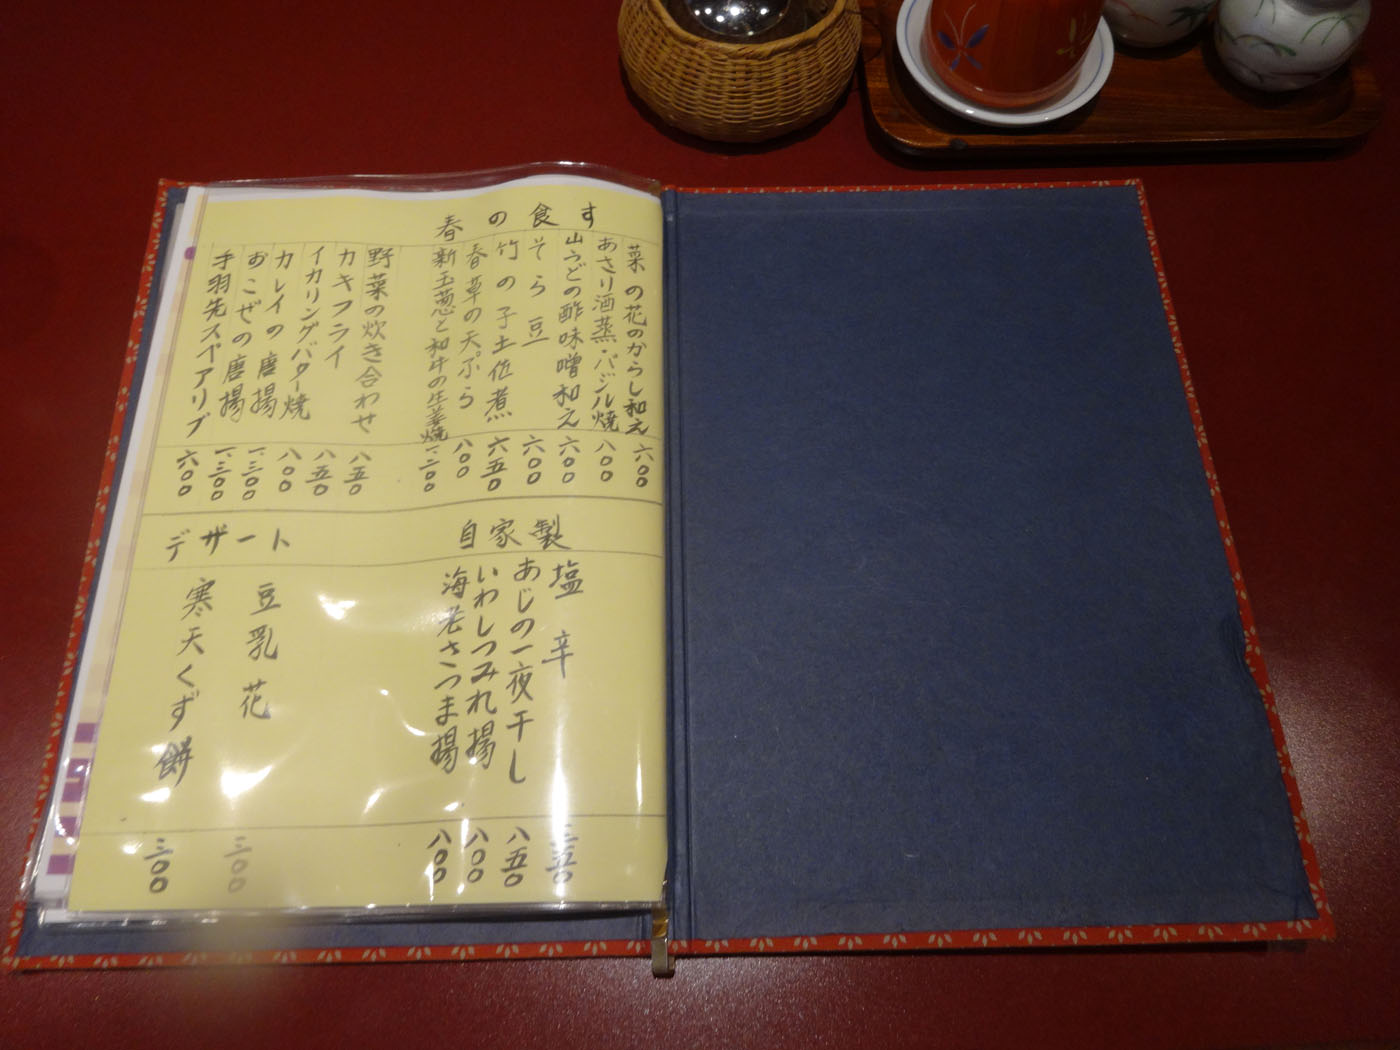 春の食す
菜の花のからし和え 六〇〇
あさり酒蒸・バジル焼 八〇〇
山うどの酢味噌和え 六〇〇
そら豆 六〇〇
竹の子土佐煮 六五〇
春草の天ぷら 八〇〇
新玉葱と和牛の生姜焼 一、二〇〇
野菜の炊き合わせ 八五〇
カキフライ 八五〇
イカリングバター焼 八〇〇
カレイの唐揚 一、三〇〇
おこぜの唐揚 一、三〇〇
手羽先スペアリブ 六〇〇
自家製
塩辛 三五〇
あじの一夜干し 八五〇
いわしつみれ揚 八〇〇
海老さつま揚 八〇〇
デザート
豆乳花 三〇〇
寒天くず餅 三〇〇